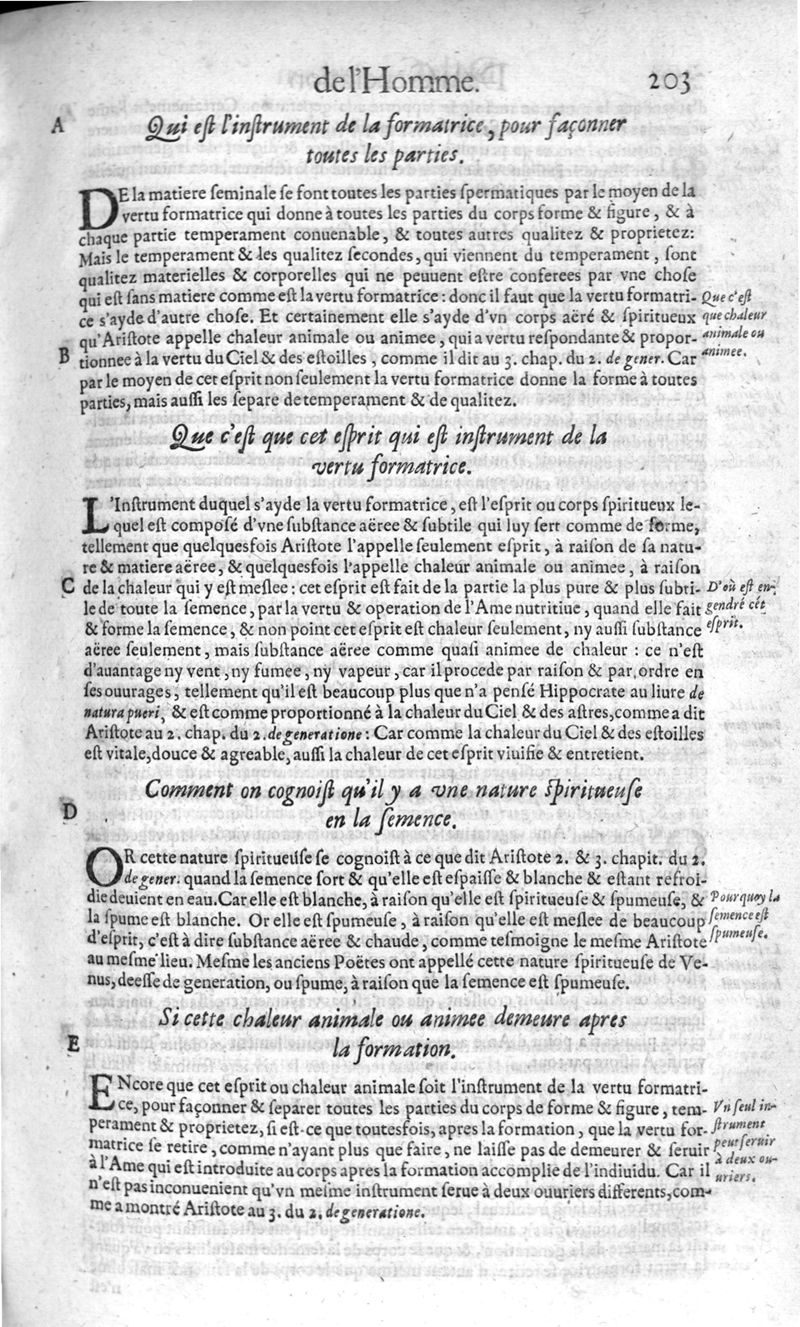 de l'Homme. 203
A Qui eſt l'inſtrument de la formatrice, pour façonner
toutes les parties.
DE la matiere ſeminale ſe font toutes les parties ſpermatiques par le moyen de la
vertu formatrice qui donne à toutes les parties du corps forme & figure, & à
chaque partie temperament conuenable, & toutes autres qualitez & proprietez:
Mais le temperament & les qualitez ſecondes, qui viennent du temperament, ſont
qualitez materielles & corporelles qui ne peuuent eſtre conferees par vne choſe
qui eſt ſans matiere comme eſt la vertu formatrice : donc il faut que la vertu formatri-
ce s'ayde d'autre choſe. Et certainement elle s'ayde d'vn corps aëré & ſpiritueux
qu'Ariſtote appelle chaleur animale ou animee, qui a vertu reſpondante & propor-
B tionnee à la vertu du Ciel & des eſtoilles, comme il dit au 3. chap. du 2. de gener. Car
par le moyen de cet eſprit non ſeulement la vertu formatrice donne la forme à toutes
parties, mais auſſi les ſepare de temperament & de qualitez.
Que c'eſt
que chaleur
animale ou
animee.
Que c'eſt que cet eſprit qui eſt inſtrument de la
vertu formatrice.
L'Inſtrument duquel s'ayde la vertu formatrice, eſt l'eſprit ou corps ſpiritueux le-
quel eſt compoſé d'vne ſubſtance aëree & ſubtile qui luy ſert comme de forme,
tellement que quelquesfois Ariſtote l'appelle ſeulement eſprit, à raiſon de ſa natu-
re & matiere aëree, & quelquesfois l'appelle chaleur animale ou animee, à raiſon
C de la chaleur qui y eſt meſlee : cet eſprit eſt fait de la partie la plus pure & plus ſubti-
le de toute la ſemence, par la vertu & operation de l'Ame nutritiue, quand elle fait
& forme la ſemence, & non point cet eſprit eſt chaleur ſeulement, ny auſſi ſubſtance
aëree ſeulement, mais ſubſtance aëree comme quaſi animee de chaleur : ce n'eſt
d'auantage ny vent, ny fumee, ny vapeur, car il procede par raiſon & par ordre en
ſes ouurages, tellement qu'il eſt beaucoup plus que n'a penſé Hippocrate au liure de
natura pueri, & eſt comme proportionné à la chaleur du Ciel & des aſtres, comme a dit
Ariſtote au 2. chap. du 2. de generatione : Car comme la chaleur du Ciel & des eſtoilles
eſt vitale, douce & agreable, auſſi la chaleur de cet eſprit viuifie & entretient.
D'où eſt en-
gendré cét
eſprit.
Comment on cognoiſt qu'il y a vne nature ſpiritueuſe
D en la ſemence.
OR cette nature ſpiritueuſe ſe cognoiſt à ce que dit Ariſtote 2. & 3. chapit. du 2.
de gener. quand la ſemence ſort & qu'elle eſt eſpaiſſe & blanche & eſtant refroi-
die deuient en eau. Car elle eſt blanche, à raiſon qu'elle eſt ſpiritueuſe & ſpumeuſe, &
la ſpume eſt blanche. Or elle eſt ſpumeuſe, à raiſon qu'elle eſt meſlee de beaucoup
d'eſprit, c'eſt à dire ſubſtance aëree & chaude, comme teſmoigne le meſme Ariſtote
au meſme lieu. Meſme les anciens Poëtes ont appellé cette nature ſpiritueuſe de Ve-
nus, deeſſe de generation, ou ſpume, à raiſon que la ſemence eſt ſpumeuſe.
Pourquoy la
ſemence eſt
ſpumeuſe.
Si cette chaleur animale ou animee demeure apres
E la formation.
ENcore que cet eſprit ou chaleur animale ſoit l'inſtrument de la vertu formatri-
ce, pour façonner & ſeparer toutes les parties du corps de forme & figure, tem-
perament & proprietez, ſi eſt-ce que toutesfois, apres la formation, que la vertu for-
matrice ſe retire, comme n'ayant plus que faire, ne laiſſe pas de demeurer & ſeruir
à l'Ame qui eſt introduite au corps apres la formation accomplie de l'indiuidu. Car il
n'eſt pas inconuenient qu'vn meſme inſtrument ſerue à deux ouuriers differents, com-
me a montré Ariſtote au 3. du 2. de generatione.
Vn ſeul in-
ſtrument
peut ſeruir
à deux ou-
uriers.